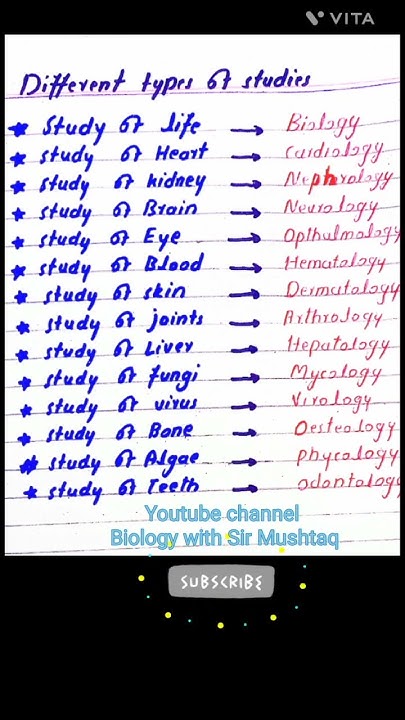 VITA
Different types of studies
★ Study of life → Biology
★ study of Heart → Cardiology
★ study of kidney → Nephrology
★ study of Brain → Neurology
★ study of Eye → Opthulmology
★ study of Blood → Hematology
★ study of skin → Dermatology
★ study of joints → Arthrology
★ study of Liver → Hepatology
★ study of fungi → Mycology
★ study of virus → Virology
★ study of Bone → Oesteology
★ study of Algae → phycology
★ study of Teeth → odontology
Youtube channel
Biology with Sir Mushtaq
SUBSCRIBE